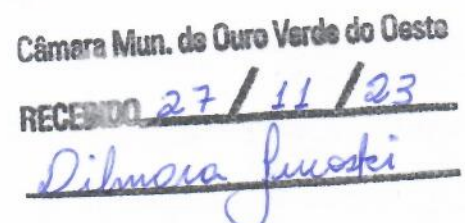 Câmara Mun. de Ouro Verde do Oeste
RECEBIDO 27/11/23
Dilmara